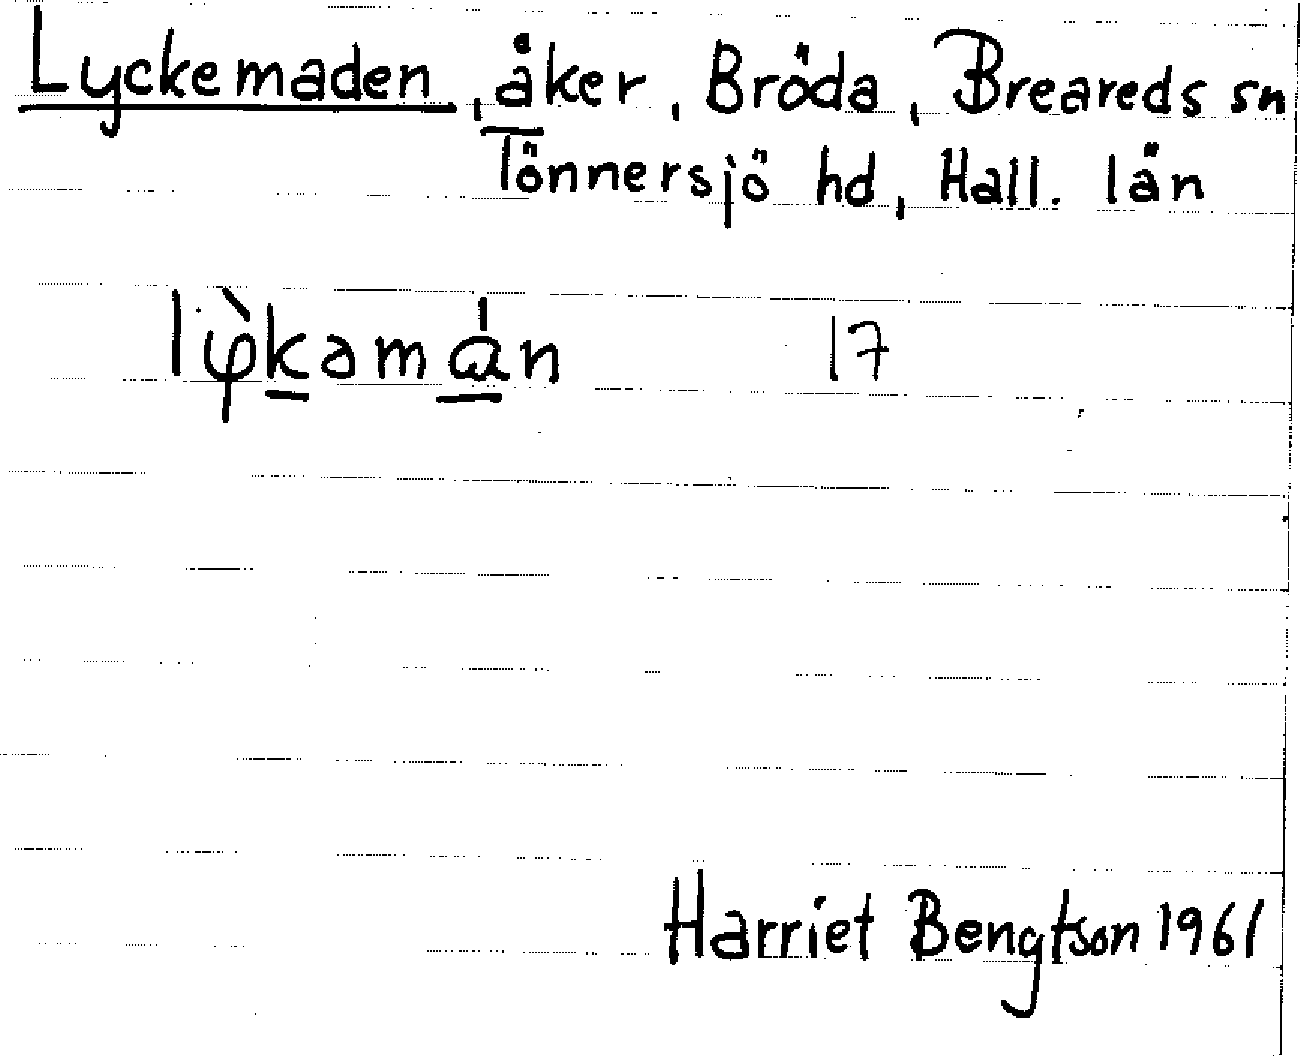 Lyckemaden, åker, Bröda, Breareds sn
Tönnersjö hd, Hall. län
liφ̀kəmɑ́n 17
Harriet Bengtson 1961